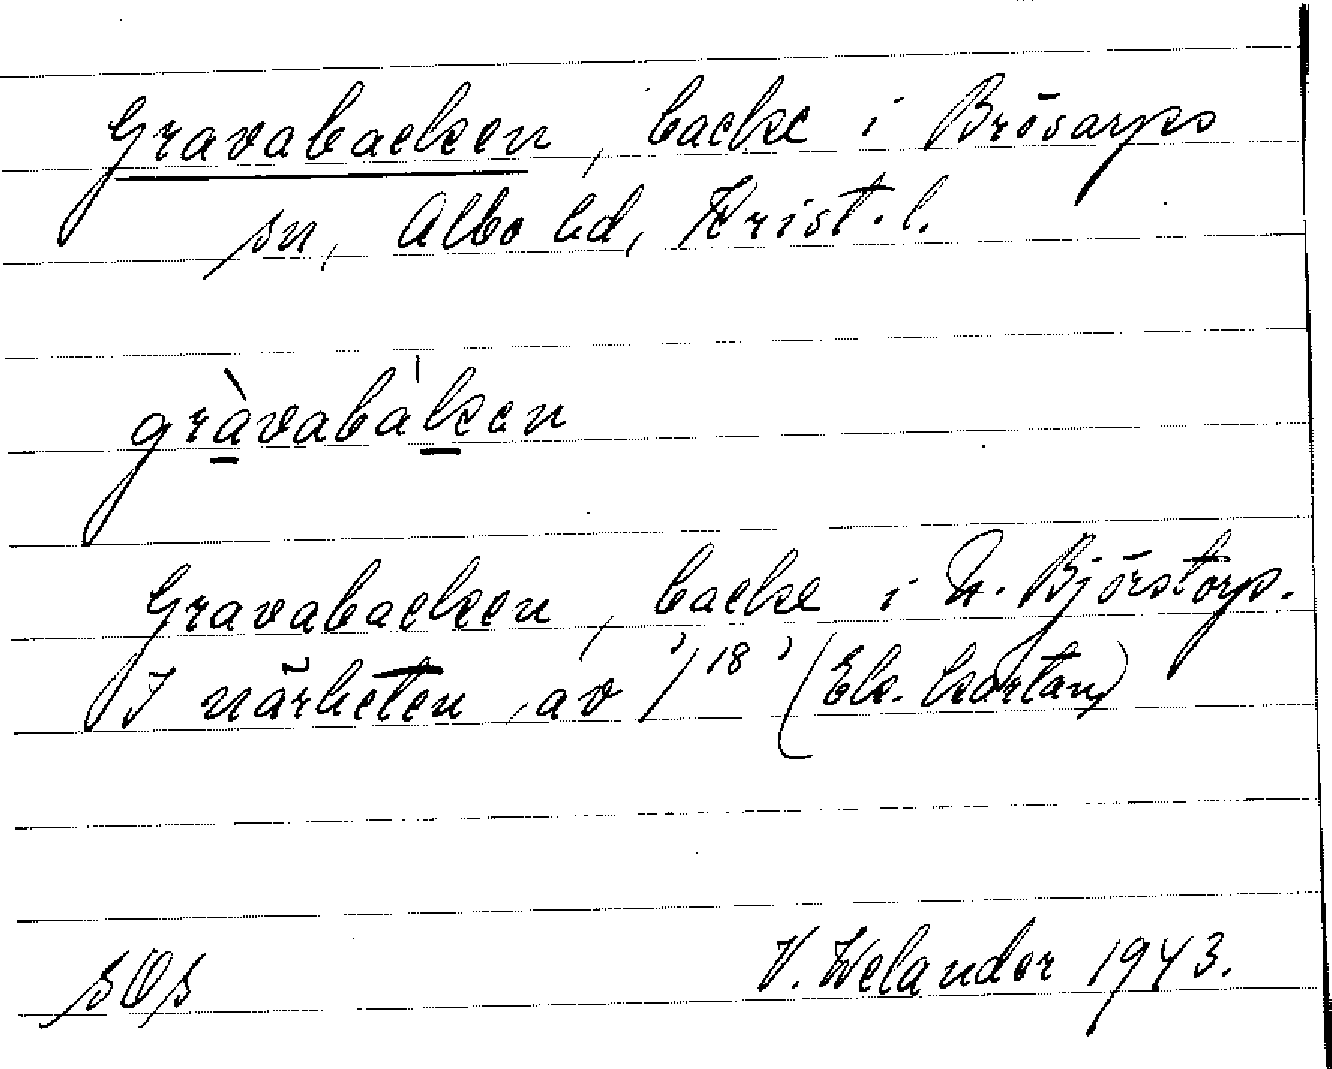 Gravabacken, backe i Brösarps
sn, Albo hd, Krist. l.
gràvabàken
Gravabacken, backe i N. Björstorp.
I närheten av 1/18 (Ek. kartan)
SOS
V. Welander 1943.